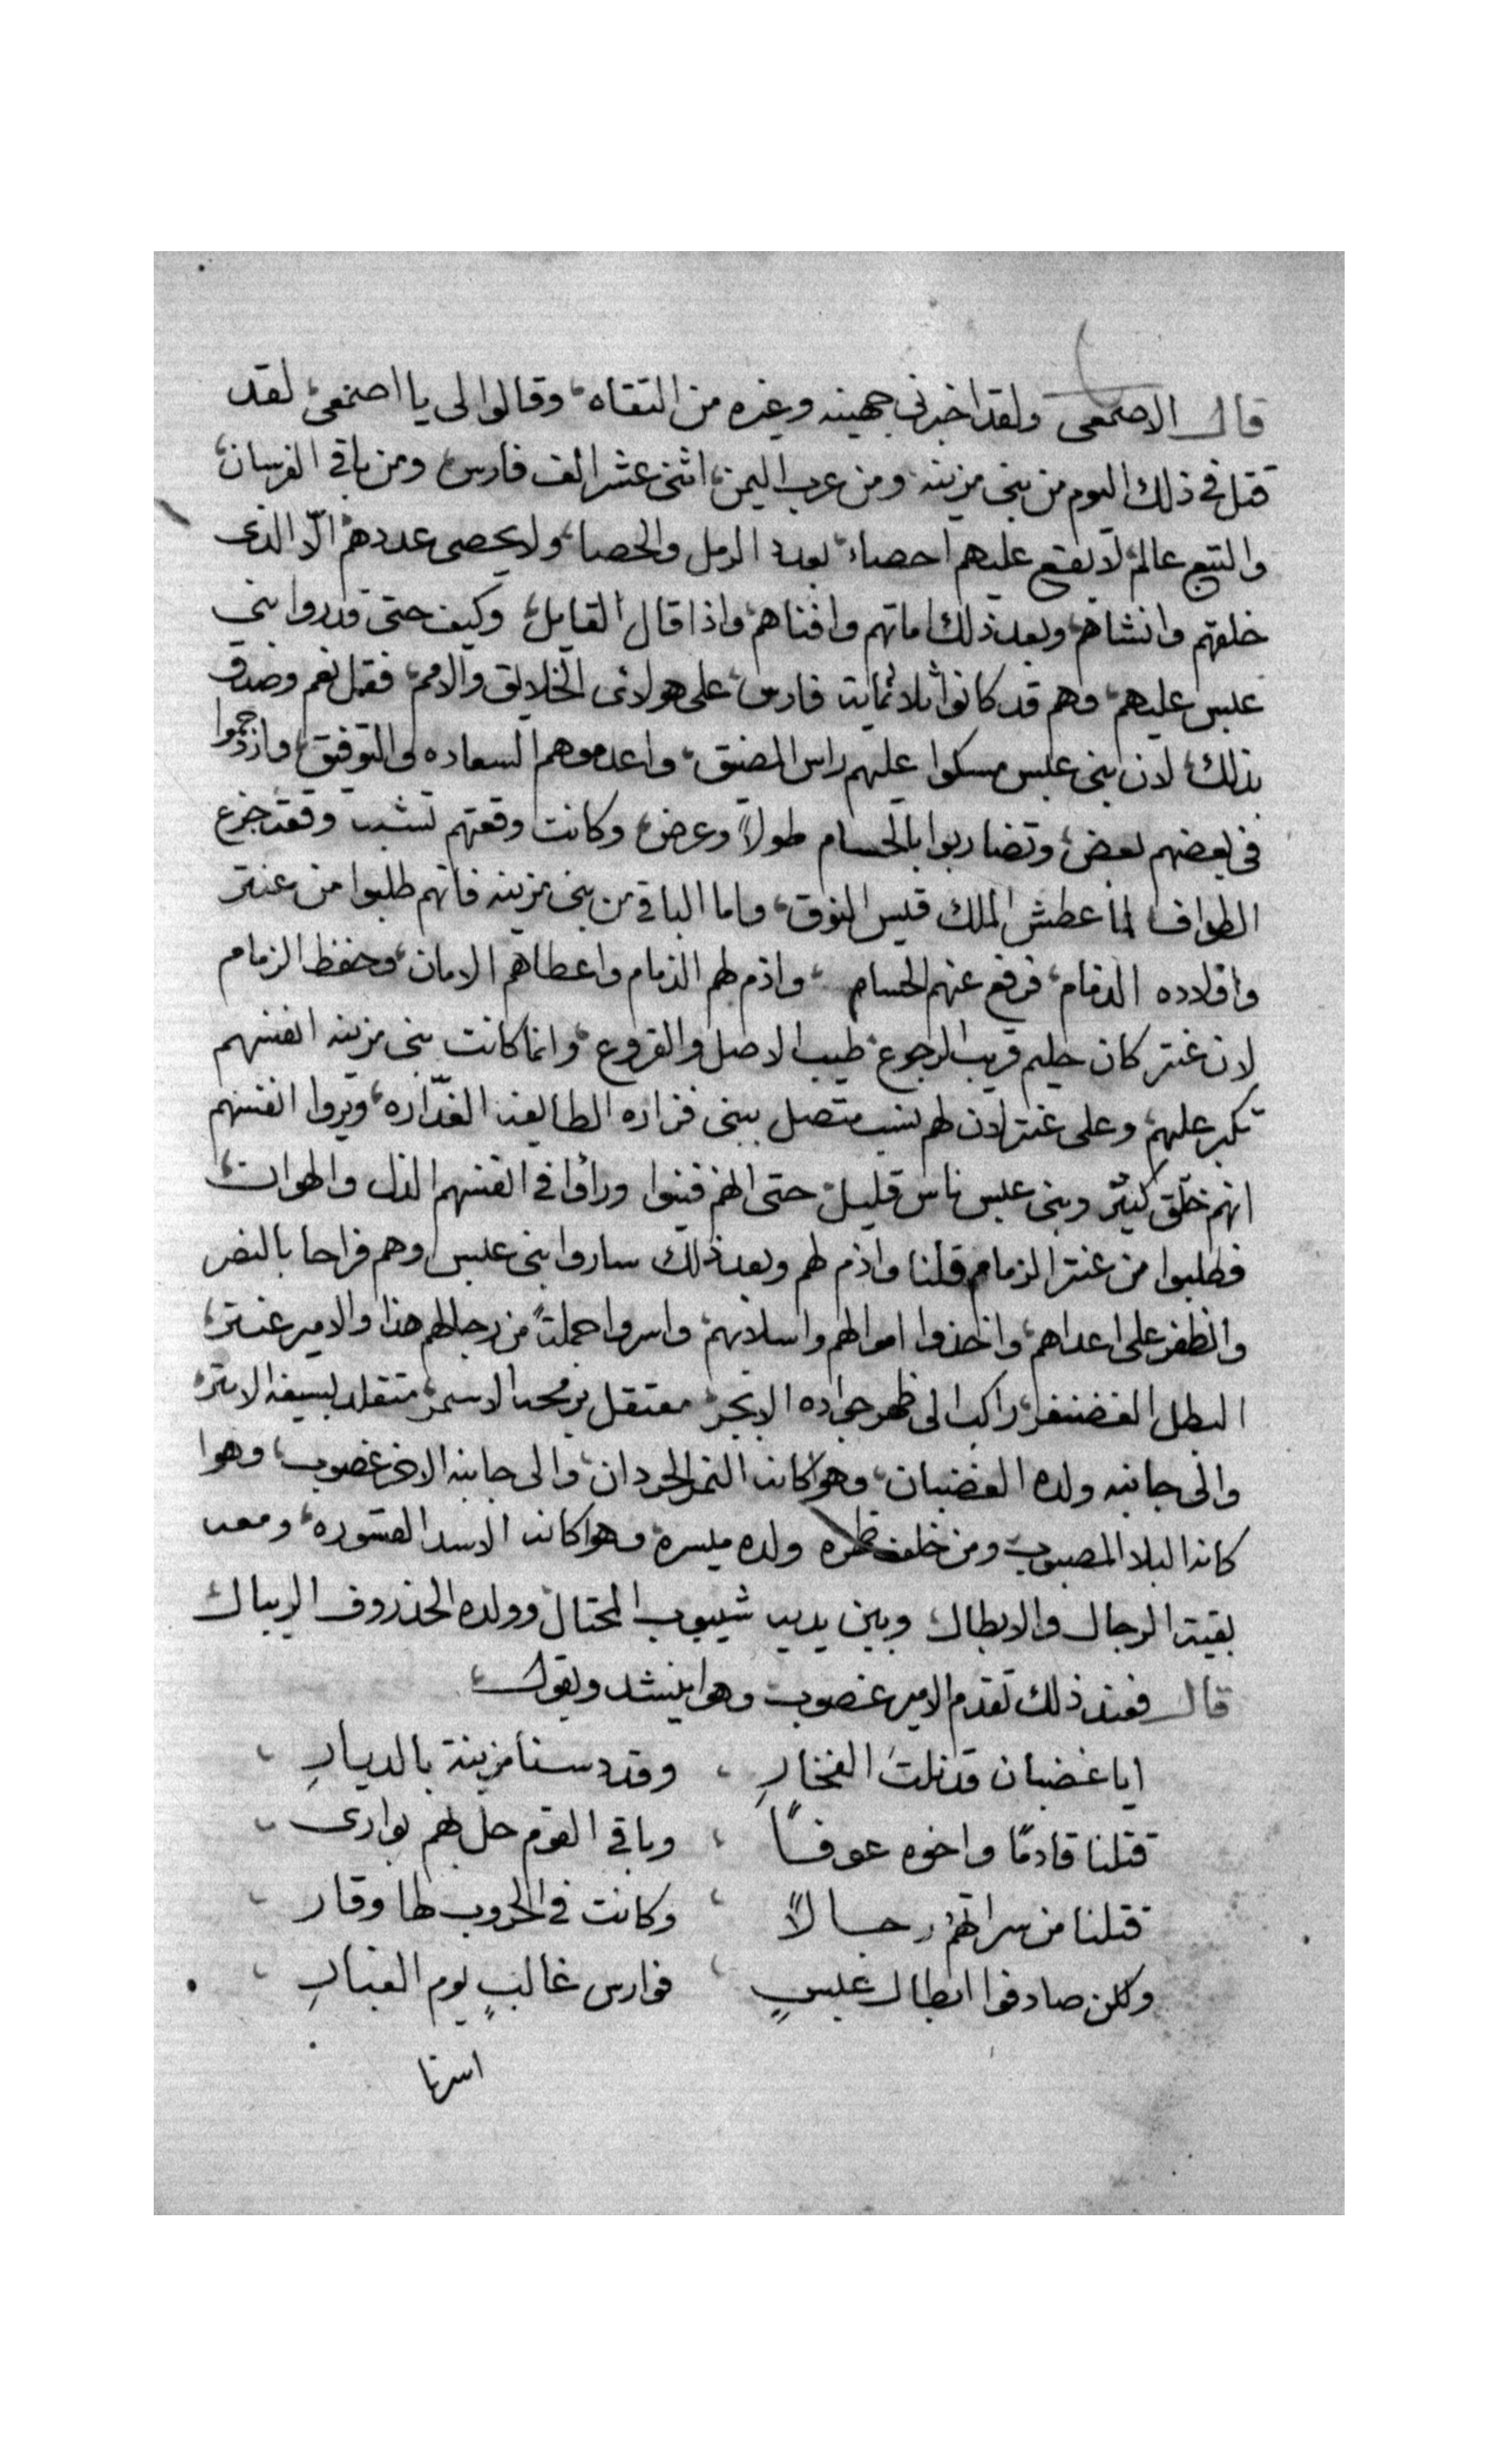 قال الاصمعى ولقد اخبرنى جهينه وغيره من التقاه، وقالوا لى يا اصمعى، لقد
قتل فى ذلك اليوم من بنى مزينه ومن عرب اليمن، اثنى عشر الف فارس، ومن باقى الفرسان،
والتبع عالم، لا يقع عليهم احصاء، بعدد الرمل والحصا، ولا يحصى عددهم الّا الذى
خلقهم وانشاهم، وبعد ذلك اماتهم وافناهم، واذا قال القايل، وكيف حتى قدروا بنى
عبس عليهم، وهم قد كانوا ثلاثماية فارس، على هولائى الخلايق والامم، فقل نعم وصدق
بذلك، لان بنى عبس مسكوا عليهم راس المضيق، واعدموهم السعاده والتوفيق، وازدحموا
فى بعضهم بعض، وتضاربوا بالحسام طولاً وعرض، وكانت وقعتهم تشبه وقعة جزع
الطواف لما عطش الملك قيس النوق، واما الباقى من بنى مزينه فانهم طلبوا من عنتر
واولاده الدمام، فرفع عنهم الحسام، واذم لهم الذمام واعطاهم الامان، وحفظ الزمام
لان عنتر كان حليم قريب الرجوع، طيب الاصل والفروع، وانما كانت بنى مزينه انفسهم
تكبر عليهم، وعلى عنتر لان لهم نسب متصل ببنى فزاره الطايفه الغدّاره، ويروا انفسهم
انهم خلق كثير وبنى عبس ناس قليل، حتى انهم فنيوا وراوا فى انفسهم الذل والهوان،
فطلبوا من عنتر الزمام قلنا واذم لهم وبعد ذلك ساروا بنى عبس وهم فراحا بالنصر
والظفر على اعداهم، واخذوا اموالهم واسلابهم، واسروا جملةً من رجالهم هذا والامير عنتر،
البطل الغضنفر، راكب الى ظهر جواده الابجر، معتقل برمحه الاسمر، متقلد بسيفه الابتر،
والى جانبه ولده الغضبان، وهو كانه النمر الحردان، والى جانبه الاخر غصوب، وهوا
كانه البلا المصبوب، ومن خلف ظهره ولده ميسره وهوا كانه الاسد القسوره، ومعه
بقية الرجال والابطال، وبين يديه شيبوب المحتال، وولده الخذروف الريبال
قال فعند ذلك تقدم الامير غصوب وهوا ينشد ويقول،
ايا غضبان قد نلت الفخارِ ، وقد دسنا مزينة بالديارِ ،
قتلنا قادمًا واخوه عوفـًا ، وباقى القوم حل بهم بوارى ،
قتلنا من سراتهم رجالاً ، وكانت فى الحروب لها وقار ،
ولكن صادفوا ابطال عبسٍ ، فوارس غالبٍ يوم الغبارِ ،
اسرنا